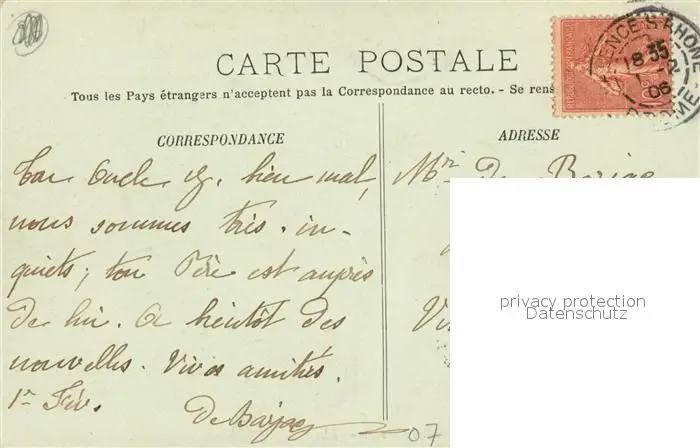 CARTE POSTALE
Tous les Pays étrangers n'acceptent pas la Correspondance au recto. - Se rens
CORRESPONDANCE
ADRESSE
Ton Oncle est bien mal,
nous sommes très in-
quiets; ton Père est auprès
de lui. A bientôt des
nouvelles. Vives amitiés.
1er Fév.
de Barjac
07
Mr de Barjac
privacy protection
Datenschutz
18 35
1 - 2
06
DROME